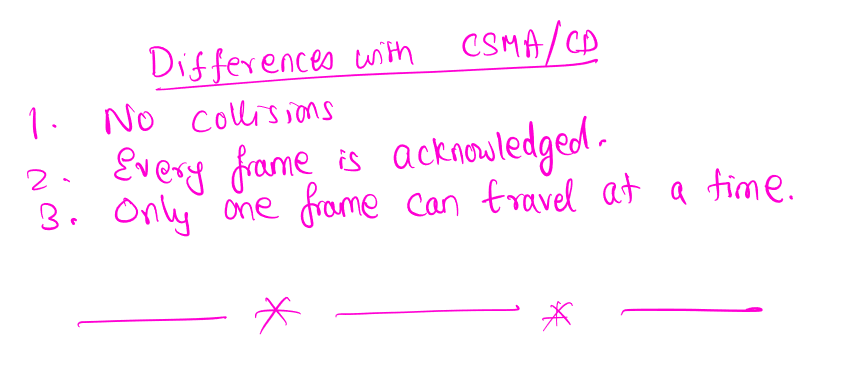 Differences with CSMA/CD
1. No collisions
2. Every frame is acknowledged.
3. Only one frame can travel at a time.